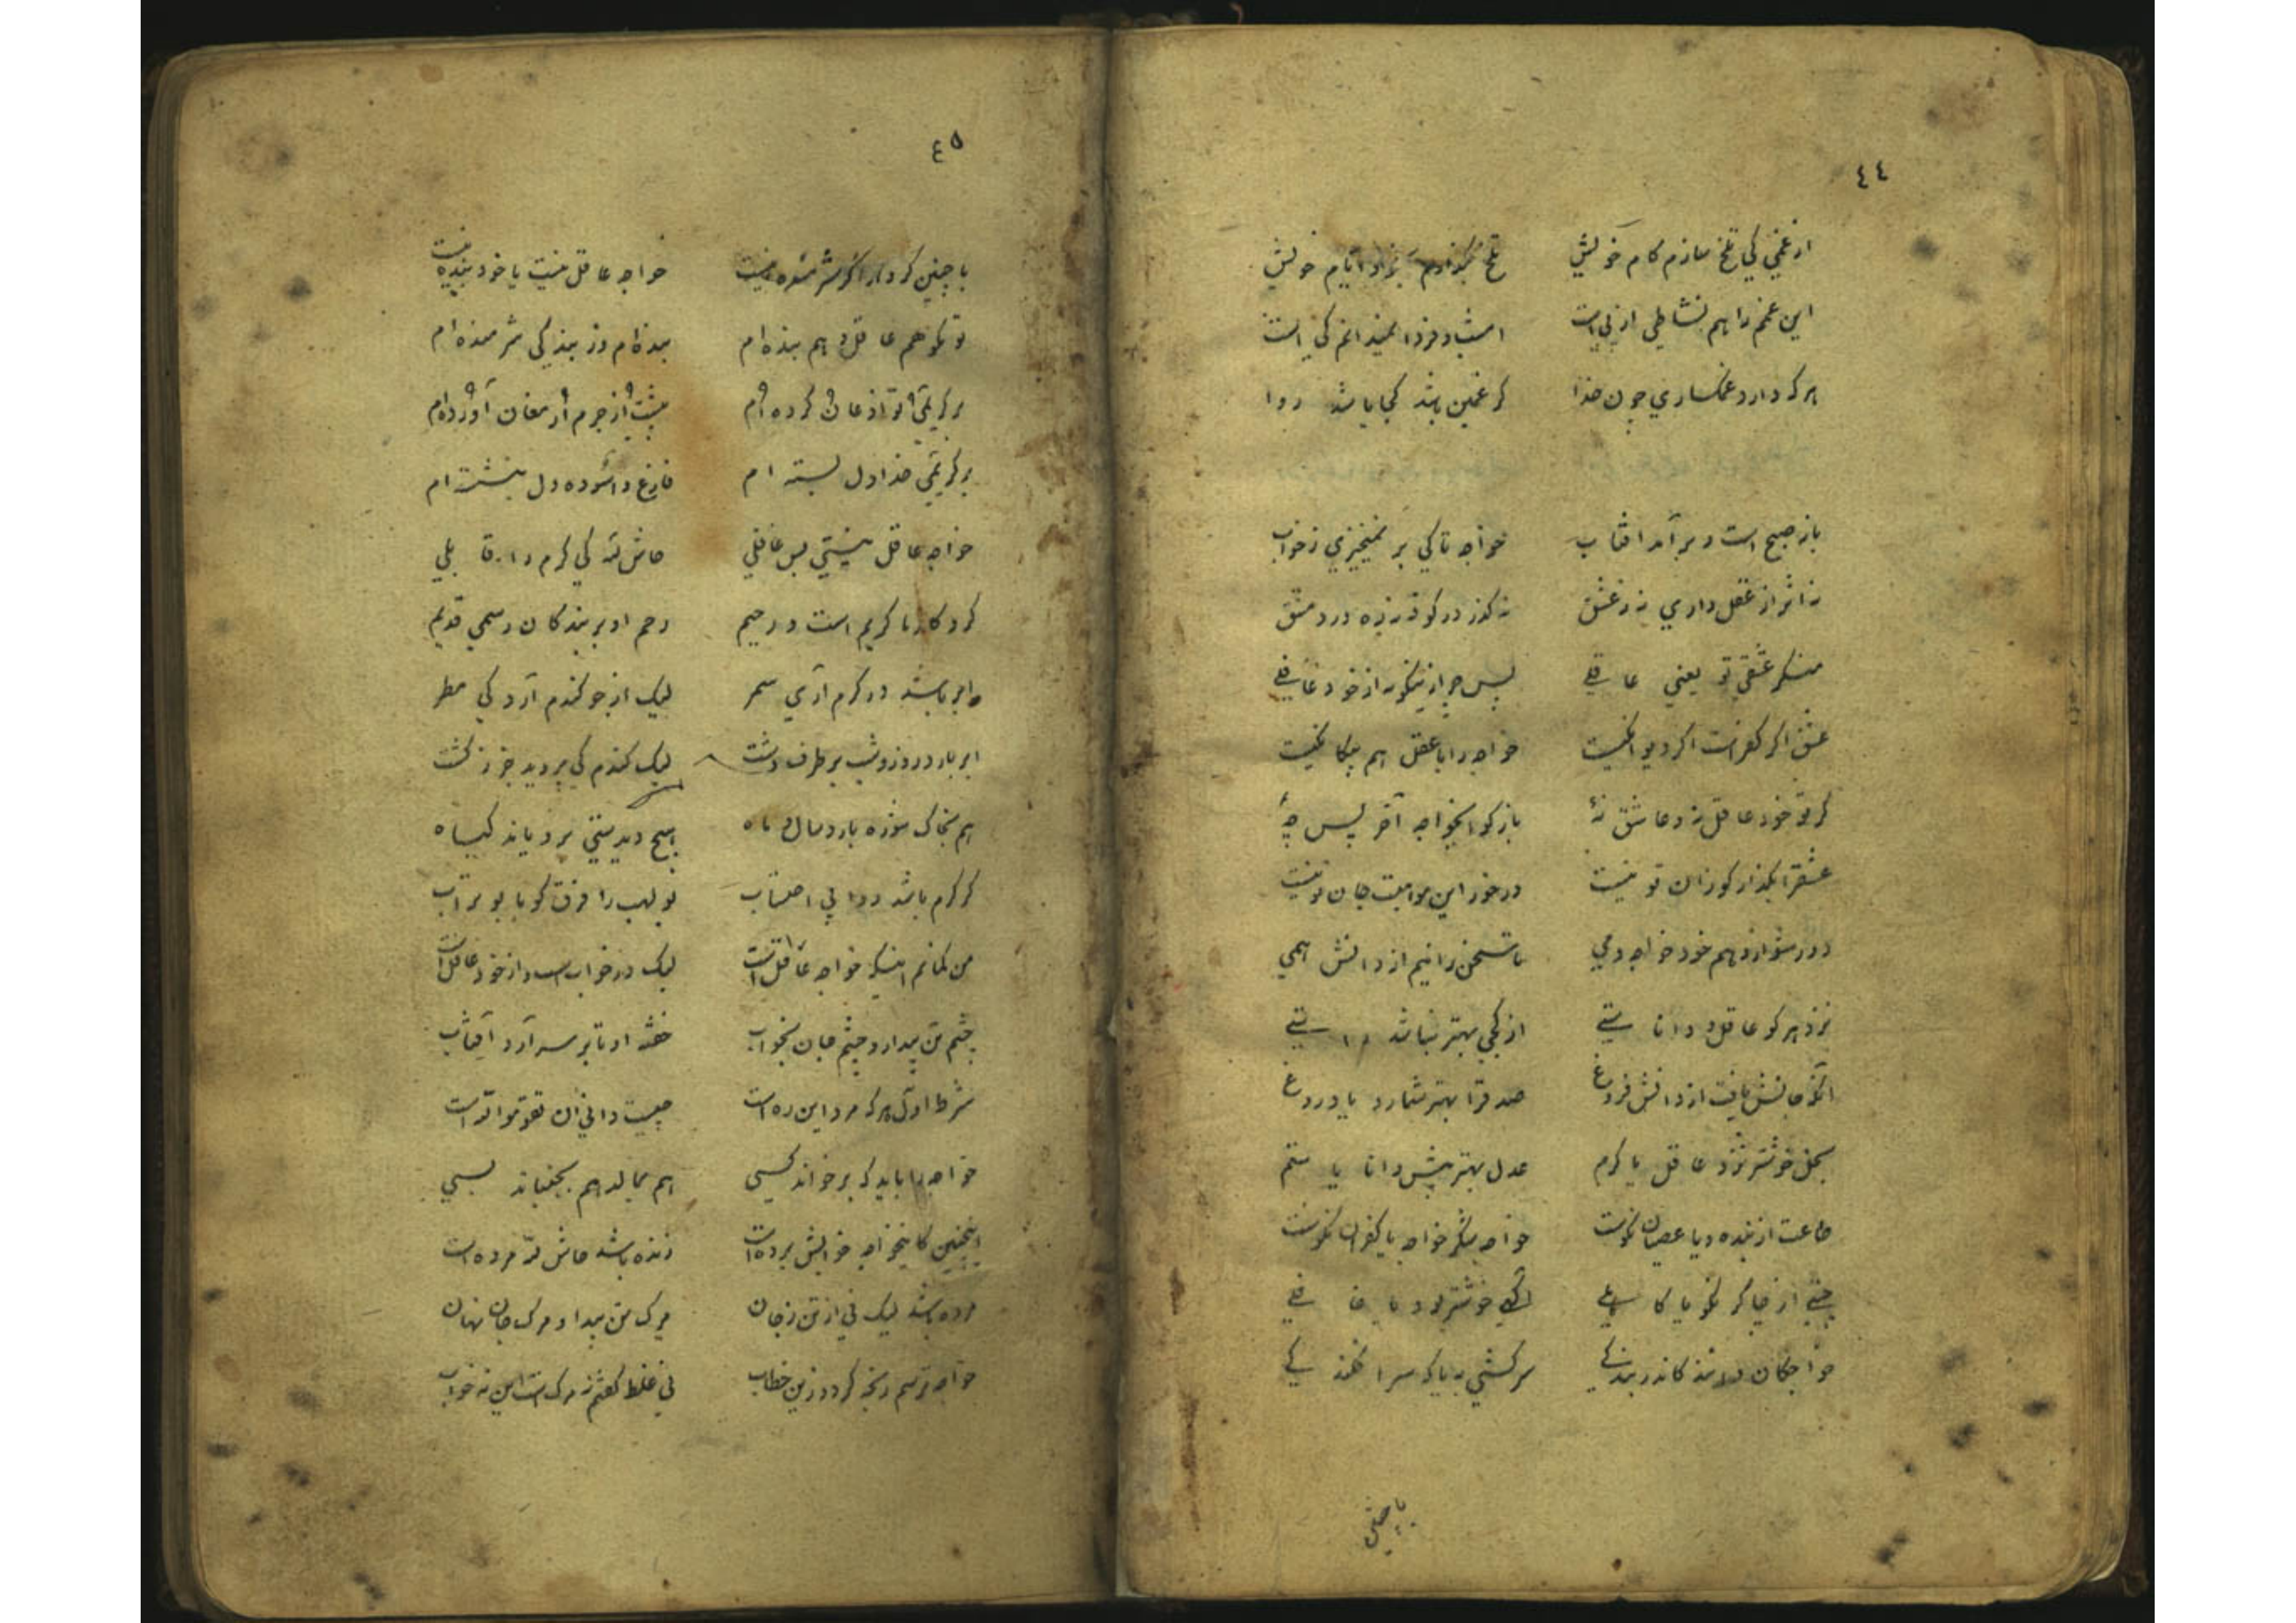 ٤٤
از غمی کی تلخ سازم کام خویش تلخ نگذارم بر او ایام خویش
این غم را هم نشاطی از پی است امشب و فردا نمیدانم کی است
هر که دارد غمکساری چون خدا کر غمین باشد کجا باشد روا
باز صبح است و برآمد افتاب خواجه تا کی بر نمیخیزی ز خواب
نه اثر از عقل داری نه ز عشق نه کذر در کوفه نه ره در دمشق
منکر عشقی تو یعنی عاقلی پس چرا زینکونه از خود غافلی
عشق اکر کفر است اکر دیوانکیست خواجه را با عقل هم بیکانکیست
کر تو خود عاقل نه و عاشق نهٔ باز کو ایخواجه آخر پس چهٔ
عشق را بگذار کو زان تو نیست در خور این موهبت جان تو نیست
دور شو از وهم خود خواجه دمی تا سخن رانیم از دانش همی
نزد هر کو عاقل و دانا ستی از کجی بهتر نباشد راستی
آنکه جانش یافت از دانش فروغ صدق را بهتر شمارد یا دروغ
بخل خوشتر نزد عاقل یا کرم عدل بهتر پیش دانا یا ستم
طاعت از بنده و یا عصیان نکوست خواجه شکر خواجه یا کفران نکوست
چستی از چاکر نکو یا کاهلی آکهی خوشتر بود یا غافلی
خواجکان دانند کاندر بندکی سرکشی به یا که سر افکندکی
با چنین
٤٥
با چنین کردار اکر شرمنده نیست خواجه عاقل نیست یا خود بنده نیست
تو نکو هم عاقل و هم بنده ام بنده ام وز بندکی شرمنده ام
بر کریمی تو اذعان کرده ام پیشت از جرم ارمغان آورده ام
بر کریمی خدا دل بسته ام فارغ و آسوده دل بنشسته ام
خواجه عاقل نیستی بس غافلی حاش لله کی کرم را قابلی
کردکار ما کریم است و رحیم رحم او بر بندکان رسمی قدیم
ابر باشد در کرم آری سمر لیک از جو کندم آرد کی مطر
ابر بارد روز و شب بر طرف دشت لیک کندم کی بروید جز ز کشت
هم بخاک شوره بارد سال و ماه هیچ دیدستی برویاند کیاه
کر کرم باشد روا بی احتساب بو لهب را فرق کو با بو تراب
من کمانم اینکه خواجه عاقل است لیک در خواب است و از خود غافل است
چشم تن بیدار و چشم جان بخواب خفته او تا بر سر آرد آفتاب
شرط اول هر که مرد این ره است چیست دانی آن تقوموا لله است
خواجه را باید که برخواند کسی هم بمالد هم بجنباند بسی
اینچنین کاینخواجه خوابش برده است زنده باشد حاش لله مرده است
مرده باشد لیک نی از تن ز جان مرک تن پیدا و مرک جان نهان
خواجه ترسم رنجه کردد زین خطاب نی غلط کفتم نه مرک است این نه خواب